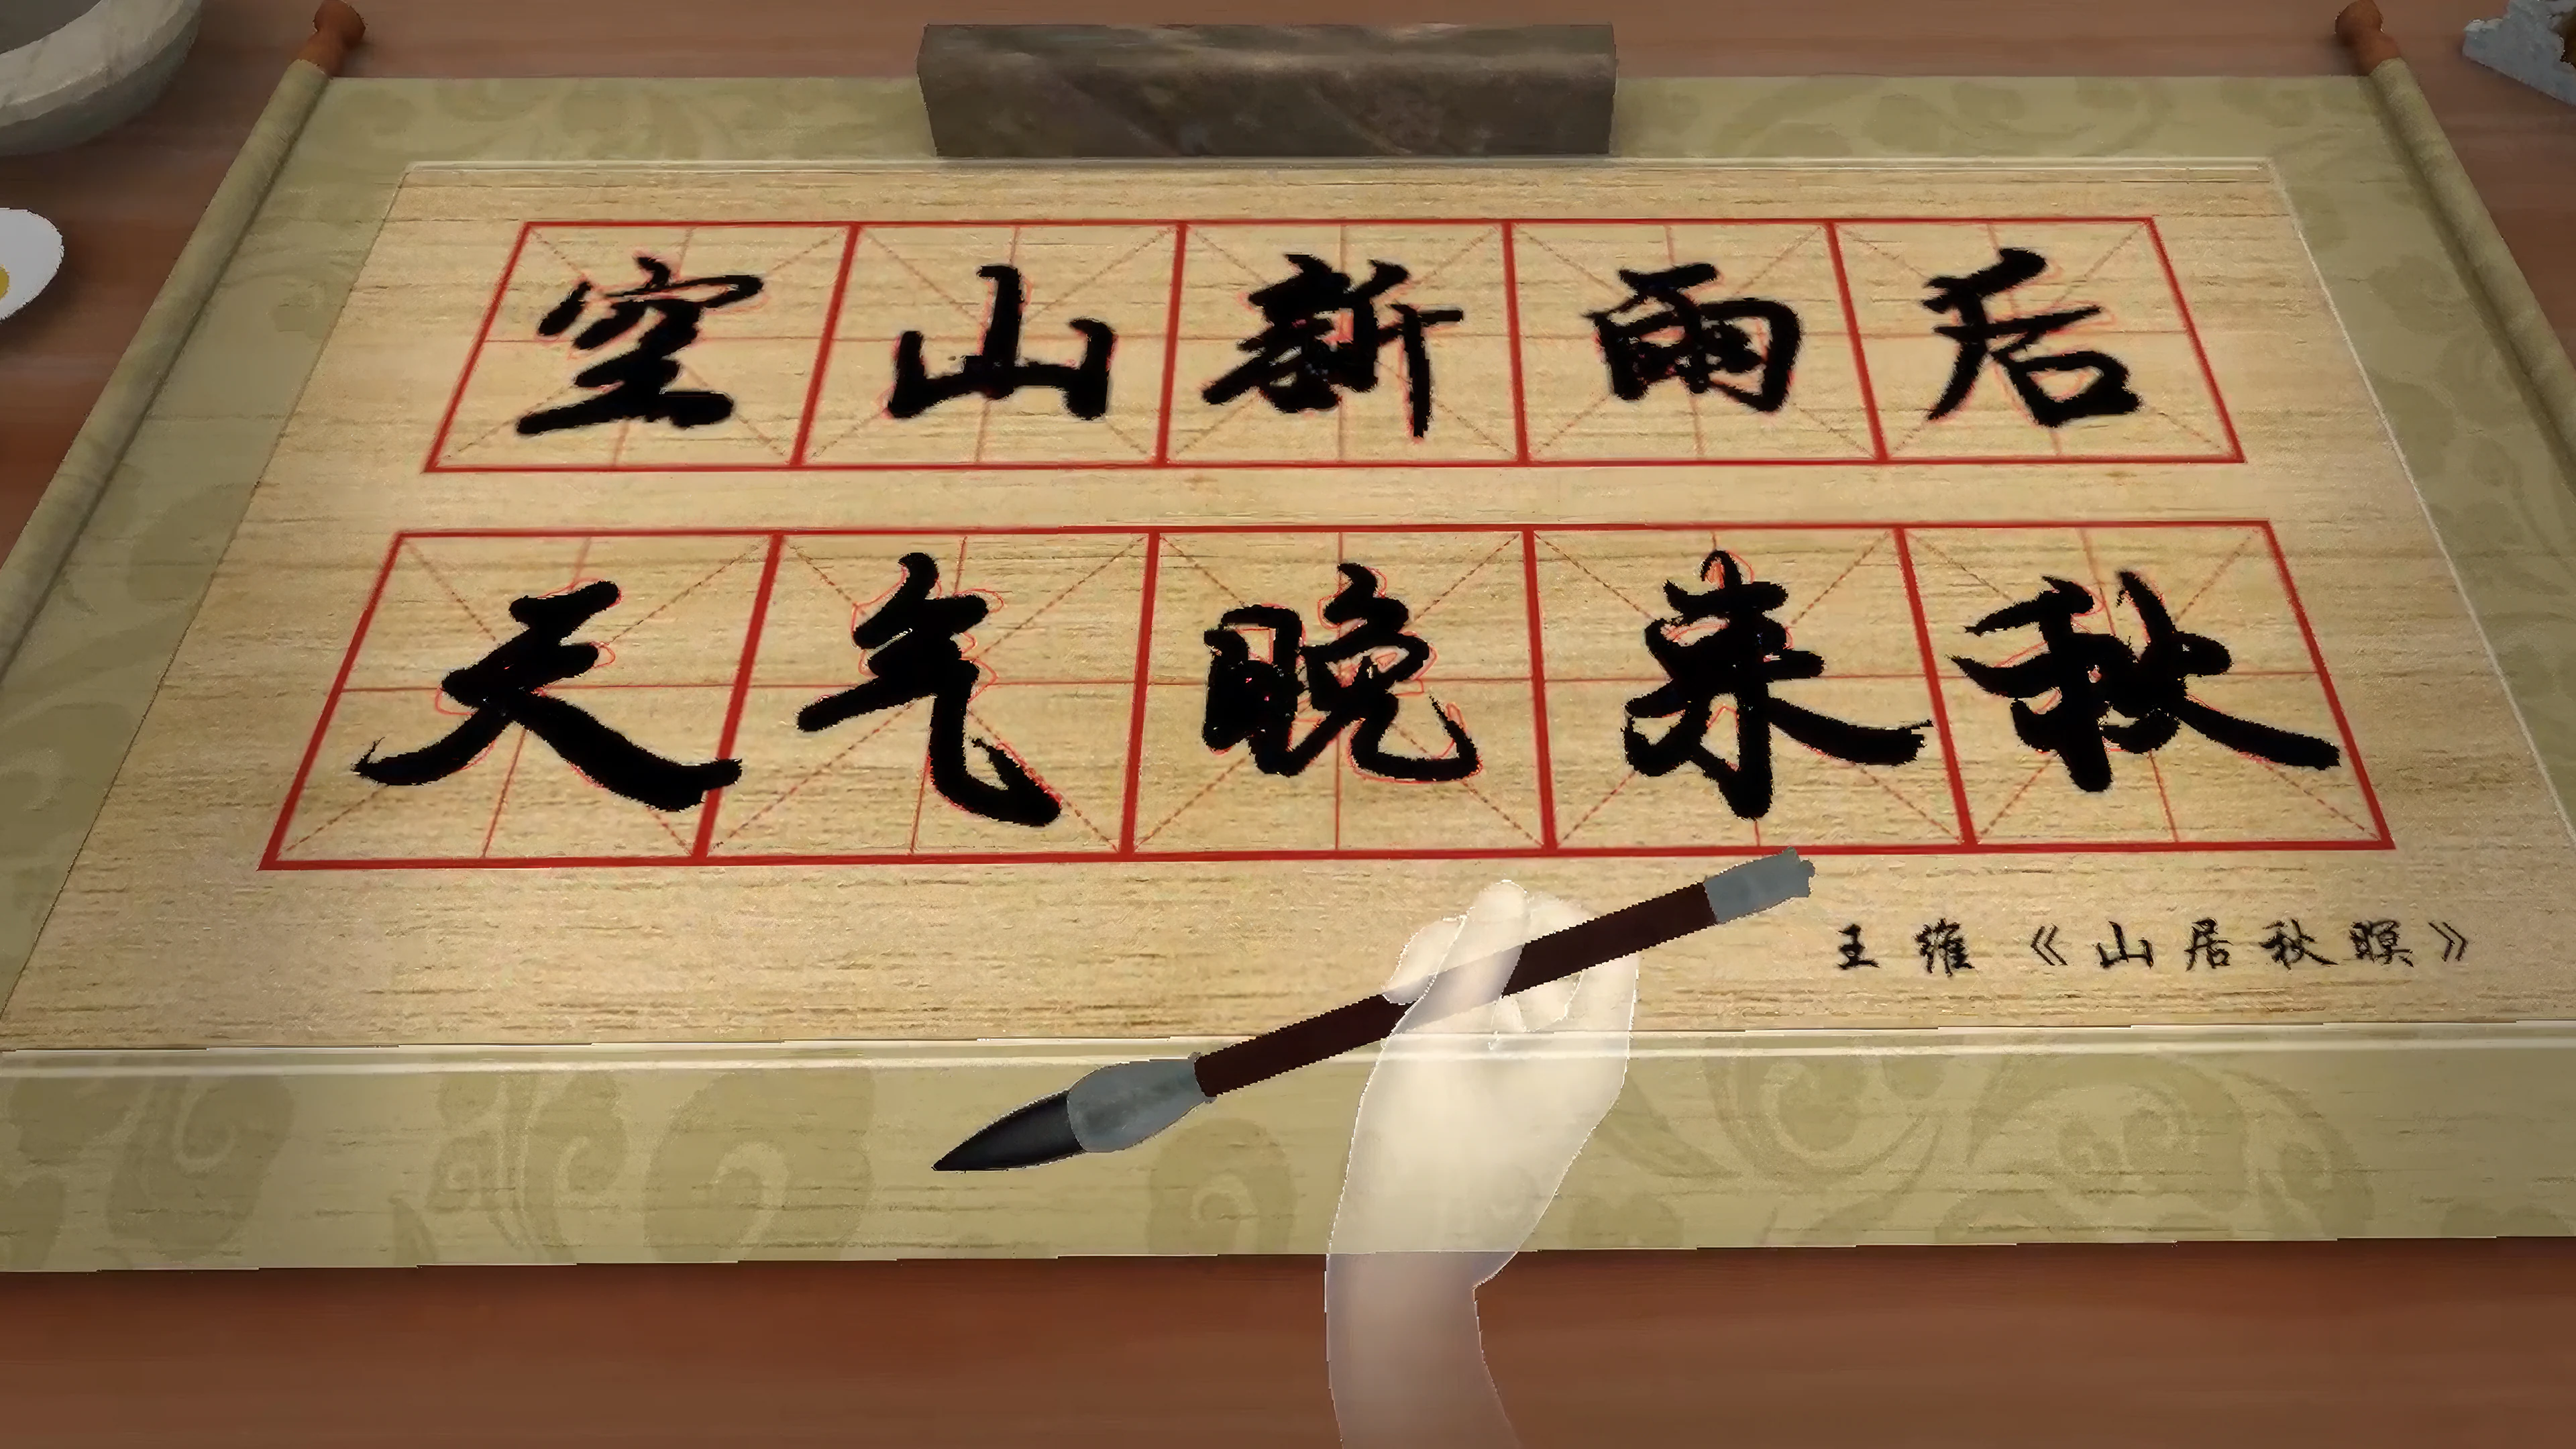 空山新雨后
天气晚来秋
王维《山居秋暝》